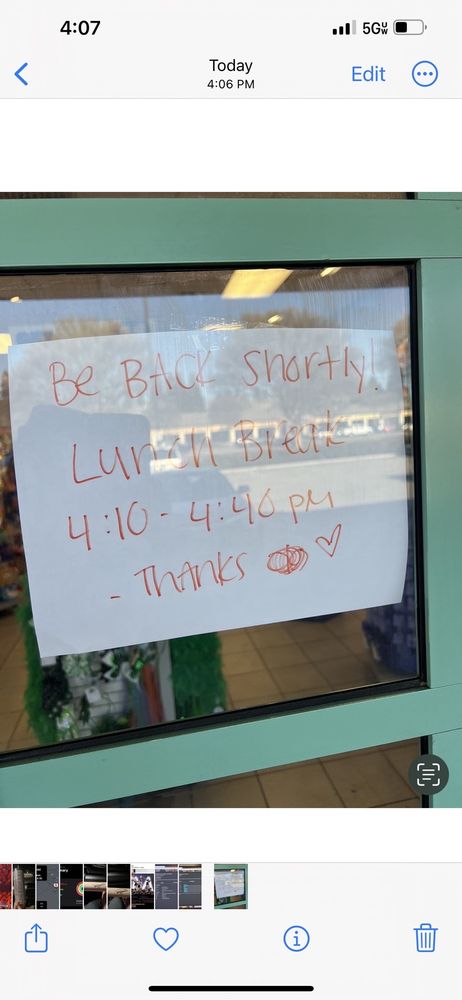 4:07
5GUW
Today
4:06 PM
Edit
Be BACK Shortly!
Lunch Break
4:10 - 4:40 pm
- THANKS